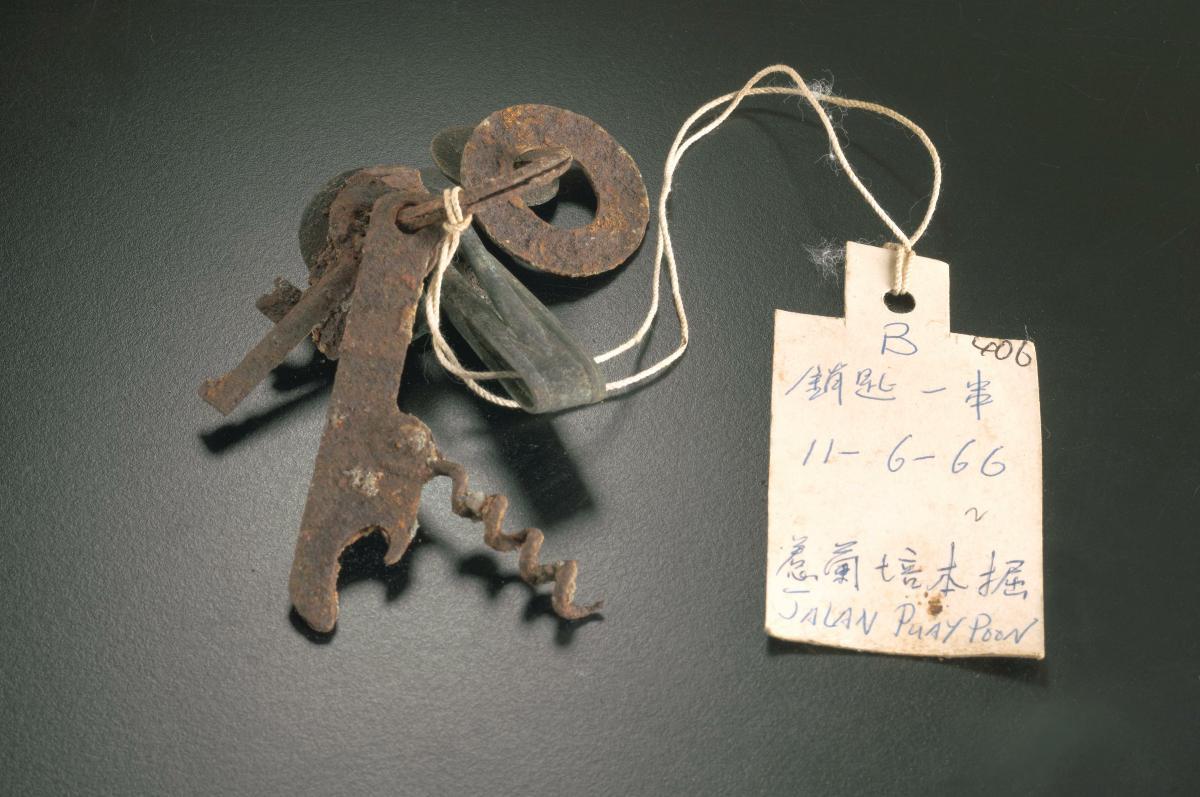 B
406
鎖匙一串
11-6-66
惹蘭培本掘
JALAN PUAY POON